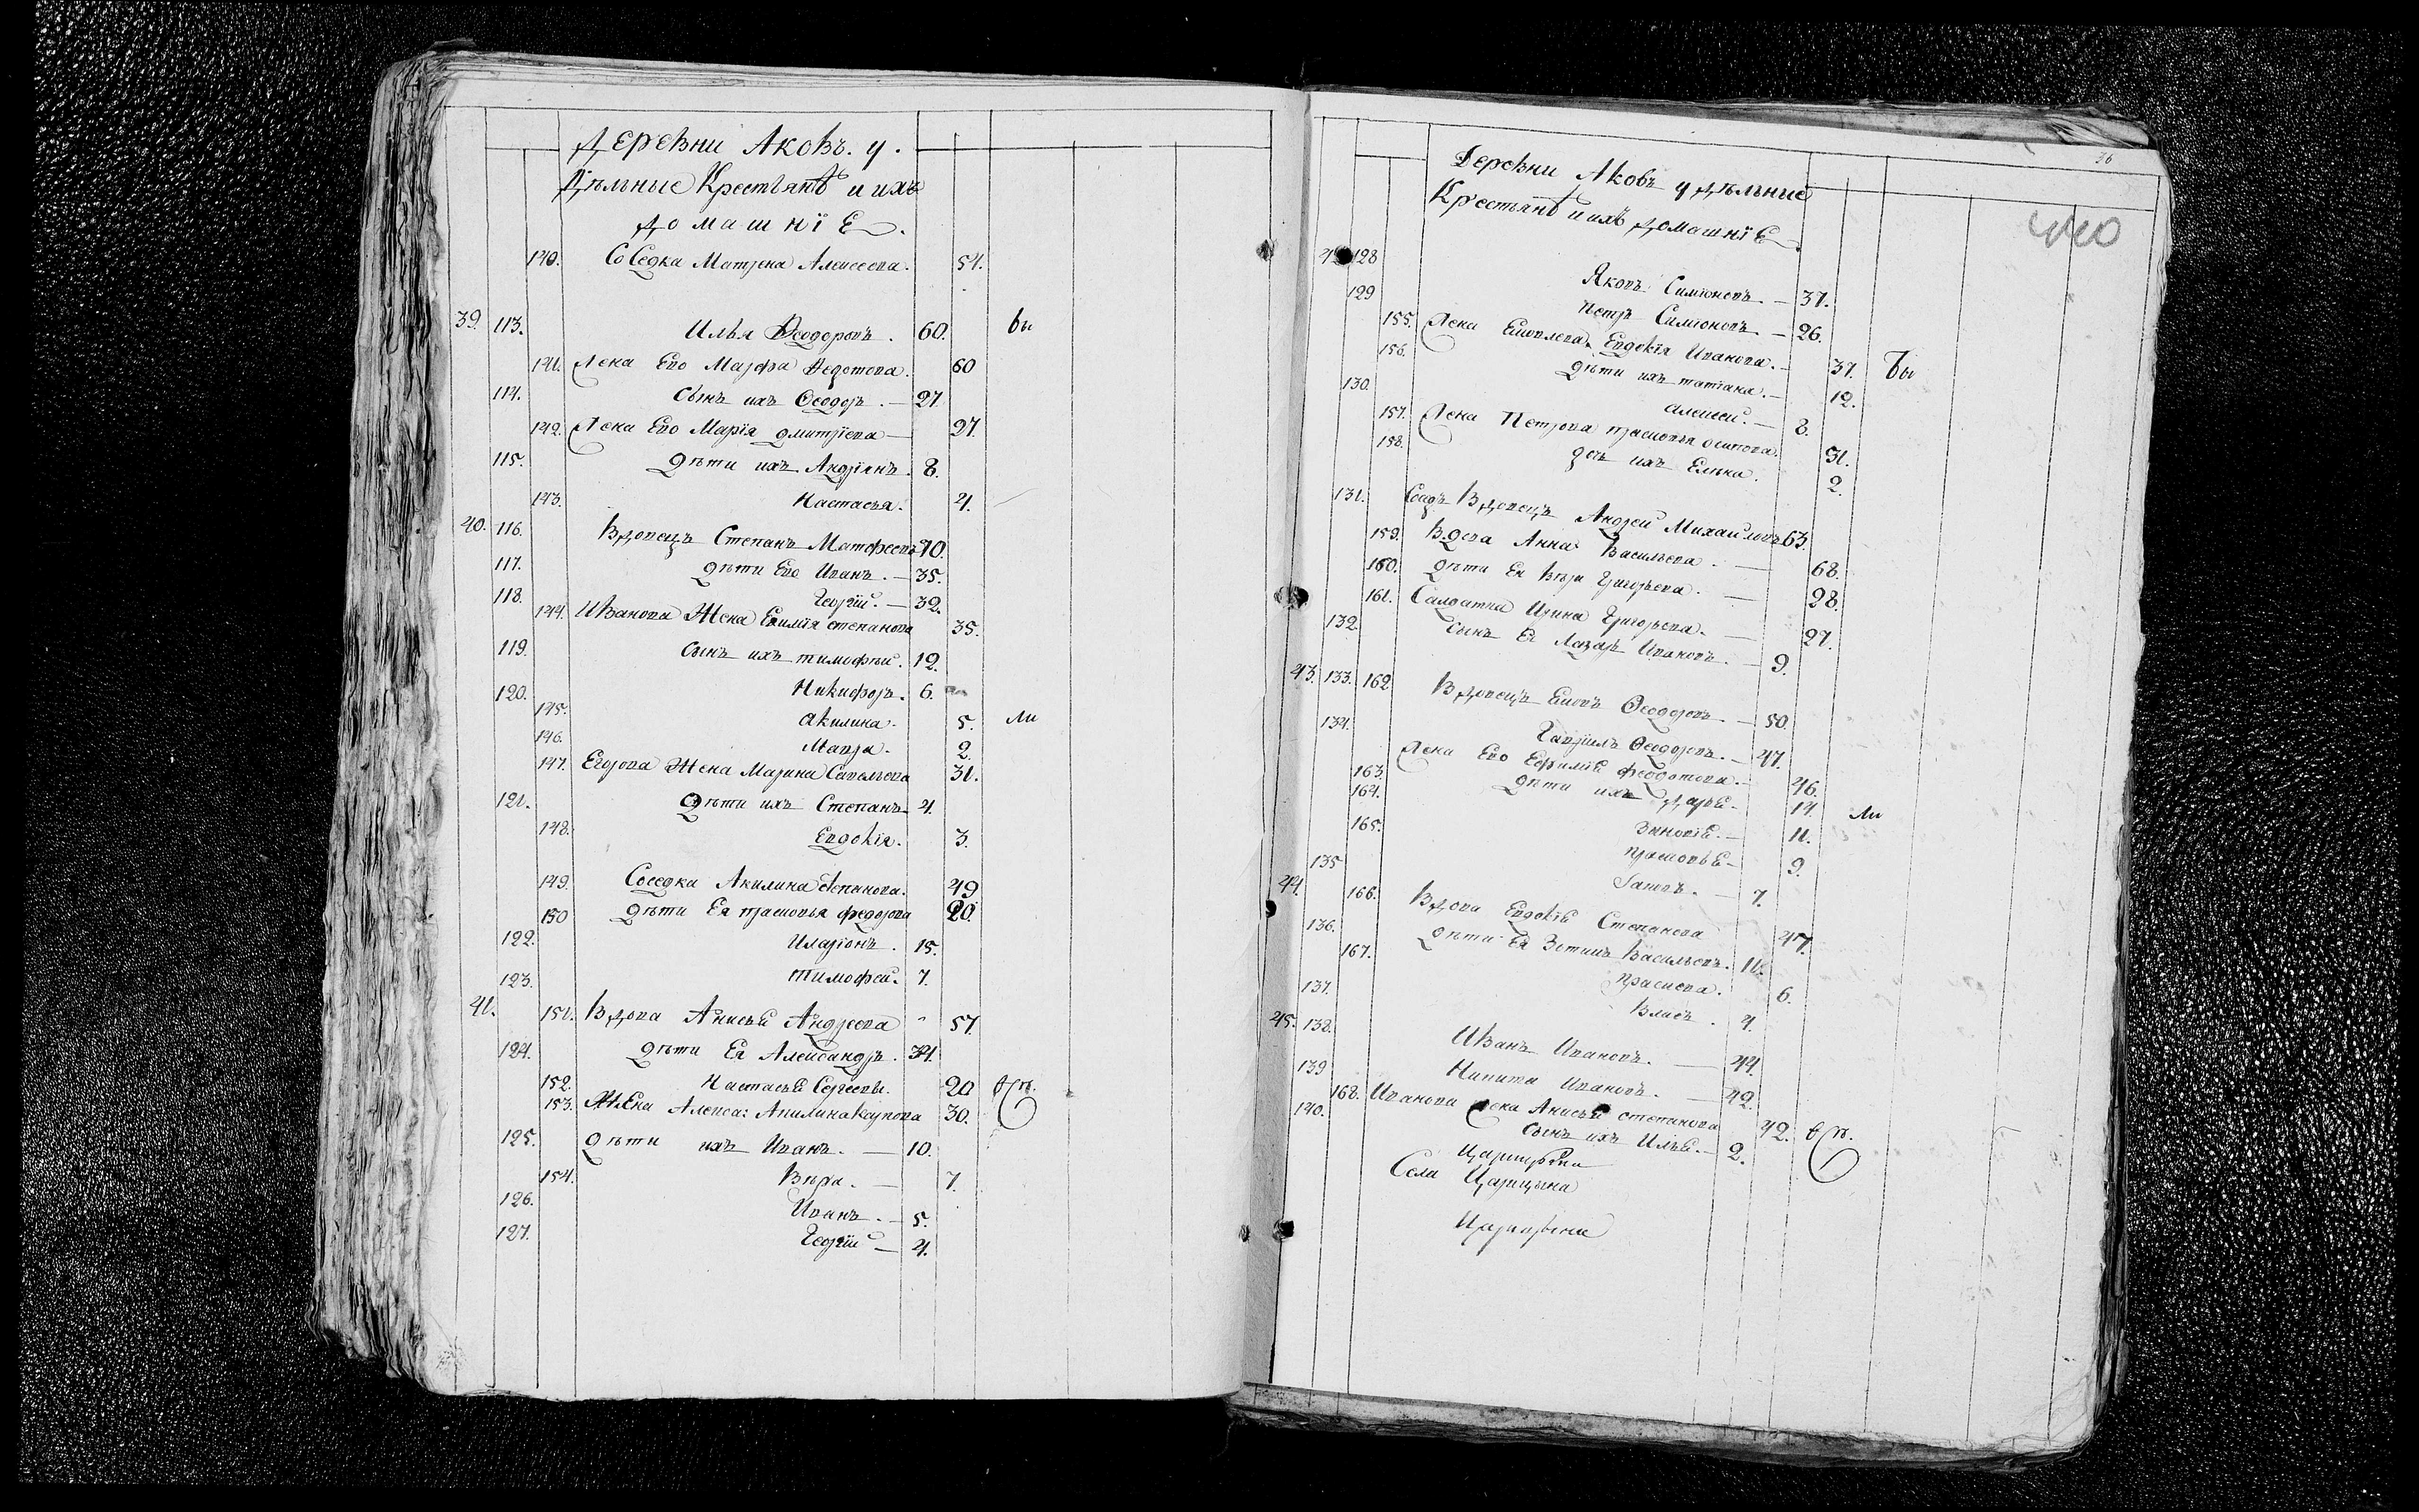 Деревни Аковъ. у.
дѣльные Крестьянѣ и ихъ
домашнїе.
140. Соседка Матрена Алексеева. 54.
39. 113. Илья Ѳеодоровъ. 60. вы
141. Жена Ево Марфа Ѳедотова. 60
114. Сынъ ихъ Ѳеодоръ. — 27.
142. Жена Ево Марїя Дмитрїева — 27.
115. Дѣти ихъ Андрїянъ. 8.
143. Настасья. 4.
40. 116. Вдовецъ Степанъ Матфеевъ 70.
117. Дѣти Ево Иванъ. — 35.
118. Георгїй. — 32.
144. Иванова Жена Евимїя Степанова 35.
119. Сынъ ихъ Тимофѣй. 12.
120. Никифоръ. 6.
145. Акилина. 5. ли
146. Мавра. 2.
147. Егорова Жена Марина Савельева 31.
121. Дѣти ихъ Степанъ 4.
148. Евдокїя. 3.
149. Соседка Акилина Степанова. 49
150 Дѣти Ея Прасковья Федорова 20.
122. Иларїонъ. 15.
123. Тимофей. 7.
41. 151. Вдова Анисья Андреева 57.
124. Дѣти Ея Александръ. 34.
152. Настасья Сергеевы. 20
153. Жена Алекса: Акилина Карпова 30.
125. Дѣти ихъ Иванъ. — 10.
154. Вѣра. — 7.
126. Иванъ. — 5.
127. Георгїй — 4.
36
Деревни Аковъ удѣльные
Крестьянѣ и ихъ домашнїе
440
128 Яковъ Симїоновъ. — 37.
129 Петръ Симїоновъ. — 26.
155. Жена Яковлева Евдокїя Иванова. — 37. вы
156. Дѣти ихъ Татїана. — 12.
130. Алексей. — 8.
157. Жена Петрова Прасковья Осипова. 31.
158. Дочь ихъ Елена. 2.
131. Сосѣдъ Вдовецъ Андрей Михайловъ 63.
159. Вдова Анна Васильева. — 68.
160. Дѣти Ея Вѣра Григорьева. — 28.
161. Салдатка Ирина Григорьева. — 27.
132. Сынъ Ея Лазарь Ивановъ. — 9.
43. 133. 162. Вдовецъ Яковъ Ѳеодоровъ. — 50.
134. Гаврїилъ Ѳеодоровъ. — 47.
Жена Ево Ефимїя Феодотова. — 46.
163. Дѣти ихъ Дарья — 14. ли
164. Зиновїя. — 11.
165. Прасковья — 9.
135 Яковъ. — 7.
44. 166. Вдова Евдокїя Степанова 47.
136. Дѣти Ея Васильевъ. 11.
167. Прасковья. 6.
137. Власъ. 4.
45. 138. Иванъ Ивановъ. — 44.
139 Никита Ивановъ. — 42.
168. Иванова Жена Анисья Степанова 42.
140. Сынъ ихъ Илья. — 2.
Царицыни
Села Царицына
Царицыни